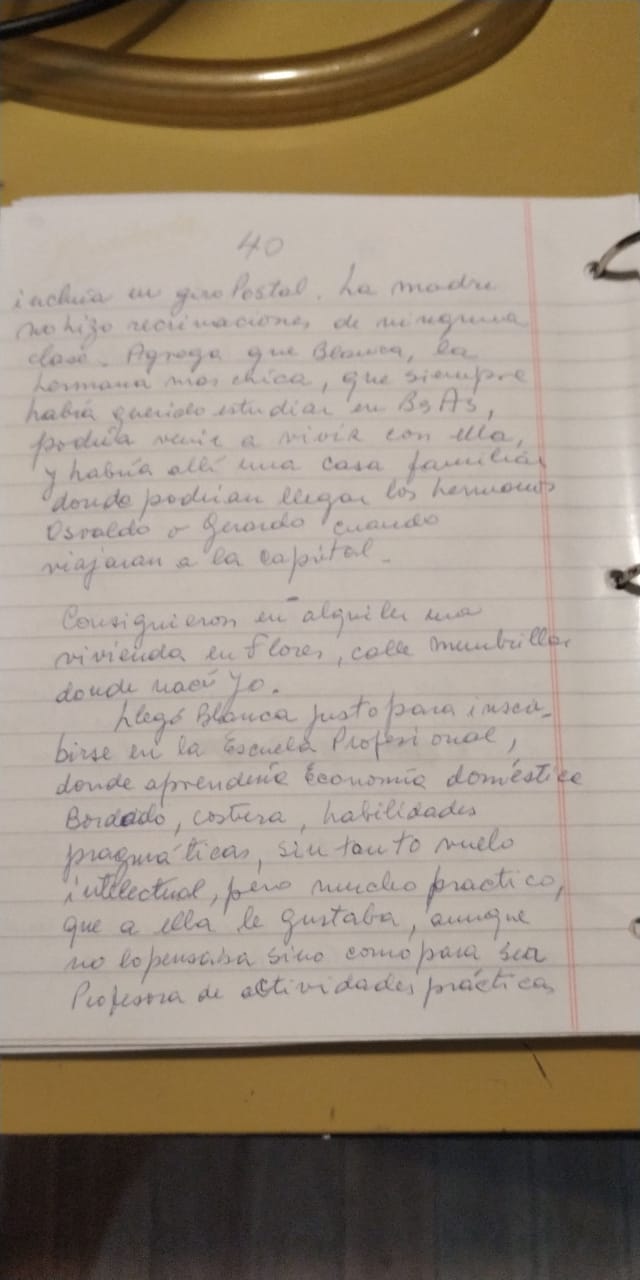 40
incluía un giro Postal. La madre
no hizo recriminaciones de ninguna
clase. Agrega que Blanca, la
hermana mas chica, que siempre
había querido estudiar en Bs As,
podría venir a vivir con ella,
y habría allí una casa familiar
donde podrian llegar los hermanos
Osvaldo o Gerardo cuando
viajaran a la capital.
Consiguieron en alquiler una
vivienda en Flores, calle Membrillar
donde nací yo.
Llegó Blanca justo para inscri-
birse en la Escuela Profesional,
donde aprendería Economía doméstica
Bordado, costura, habilidades
pragmáticas, sin tanto vuelo
intelectual, pero mucho practico,
que a ella le gustaba, aunque
no lo pensaba sino como para ser
Profesora de actividades prácticas